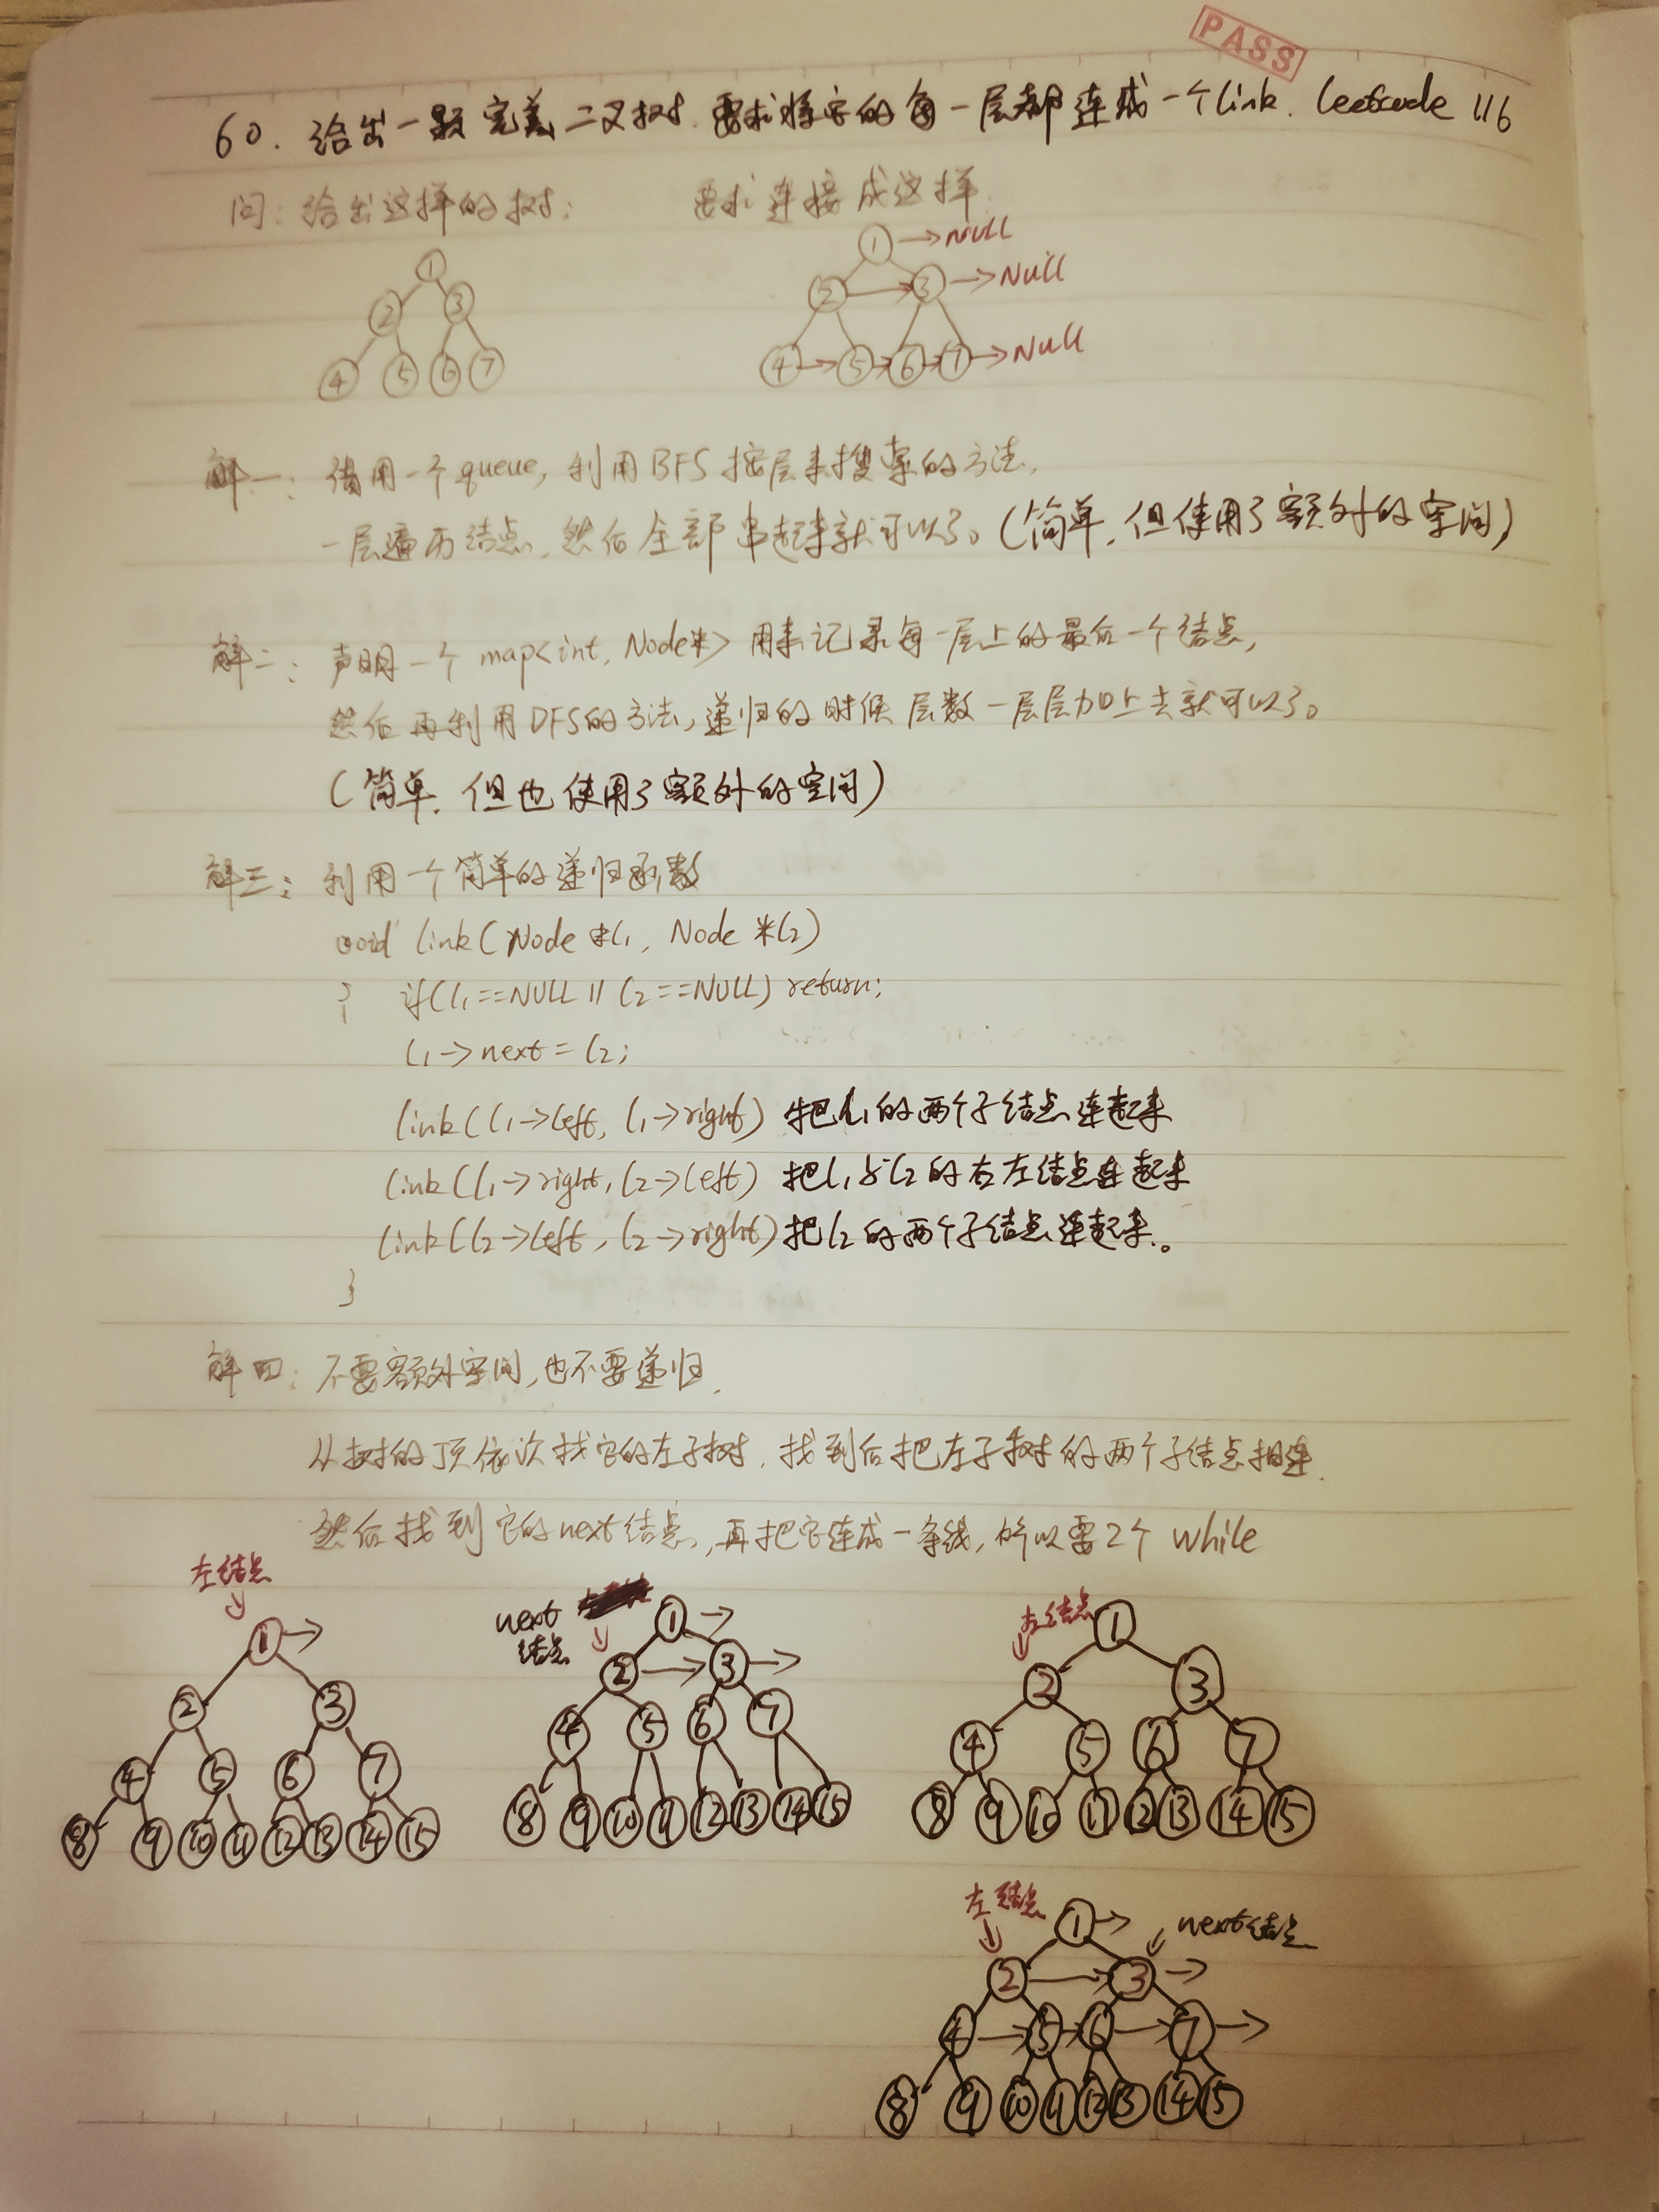 PASS
60. 给出一颗完美二叉树. 要求将它的每一层都连成一个link. leetcode 116
问: 给出这样的树: 要求连接成这样
1 →NULL
2 3 →NULL
4 5 6 7 →NULL
1
2 3
4 5 6 7
解一: 借用一个queue, 利用BFS按层来搜索的方法,
一层遍历结点, 然后全部串起来就可以了。(简单, 但使用了额外的空间)
解二: 声明一个 map<int, Node*> 用来记录每一层上的最后一个结点,
然后再利用DFS的方法, 递归的时候层数一层层加上去就可以了。
(简单, 但也使用了额外的空间)
解三: 利用一个简单的递归函数
void link(Node *l1, Node *l2)
{ if(l1==NULL || l2==NULL) return;
l1->next = l2;
link(l1->left, l1->right) 把l1的两个子结点连起来
link(l1->right, l2->left) 把l1与l2的右左结点连起来
link(l2->left, l2->right) 把l2的两个子结点连起来。
}
解四: 不要额外空间, 也不要递归.
从树的顶依次找它的左子树, 找到后把左子树的两个子结点相连.
然后找到它的next结点, 再把它连成一条线, 所以要2个 while
左结点
1
2 3
4 5 6 7
8 9 10 11 12 13 14 15
next
结点
1
2 3
4 5 6 7
8 9 10 11 12 13 14 15
左结点
1
2 3
4 5 6 7
8 9 10 11 12 13 14 15
左结点 1 next结点
2 3
4 5 6 7
8 9 10 11 12 13 14 15